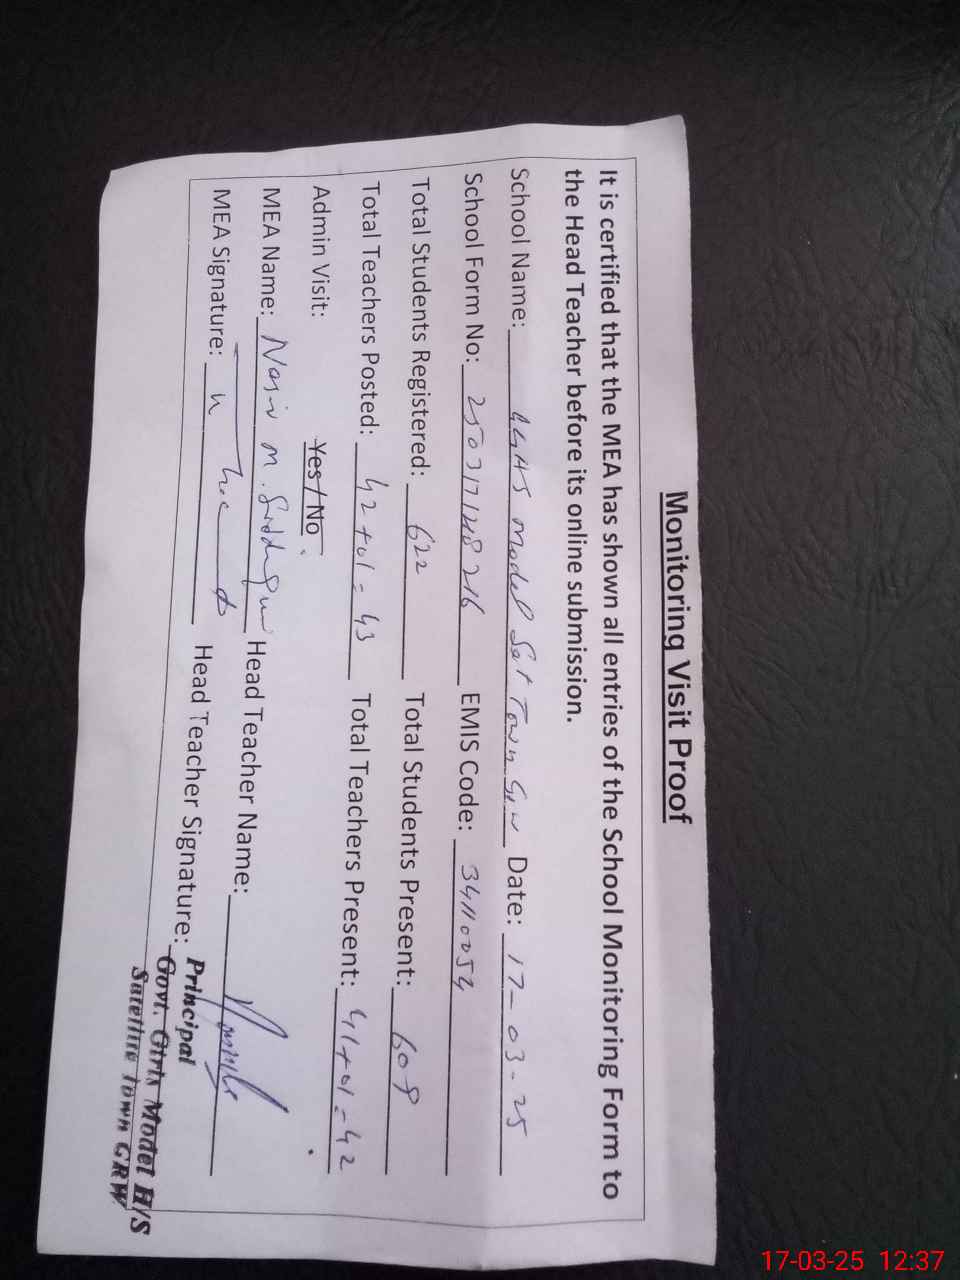 Monitoring Visit Proof
It is certified that the MEA has shown all entries of the School Monitoring Form to
the Head Teacher before its online submission.
School Name: GGHS model Sat Town GRW Date: 17-03-25
School Form No: EMIS Code: 34110054
Total Students Registered: 622 Total Students Present: 608
Total Teachers Posted: 42+01=43 Total Teachers Present: 41+01=42
Admin Visit: Yes/No
MEA Name: Nasir M. Siddiqui Head Teacher Name:
MEA Signature: Head Teacher Signature:
Principal
Govt. Girls Model H/S
Satellite Town GRW
17-03-25 12:37